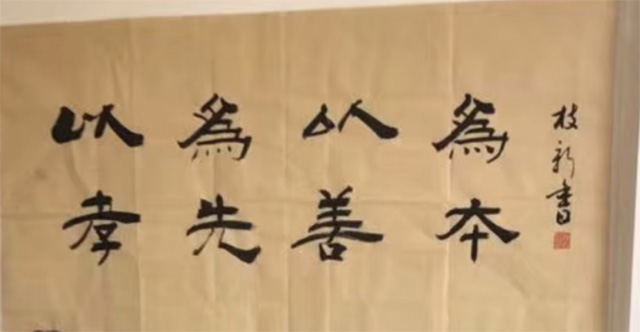 以孝
為先
以善
為本
枝新書